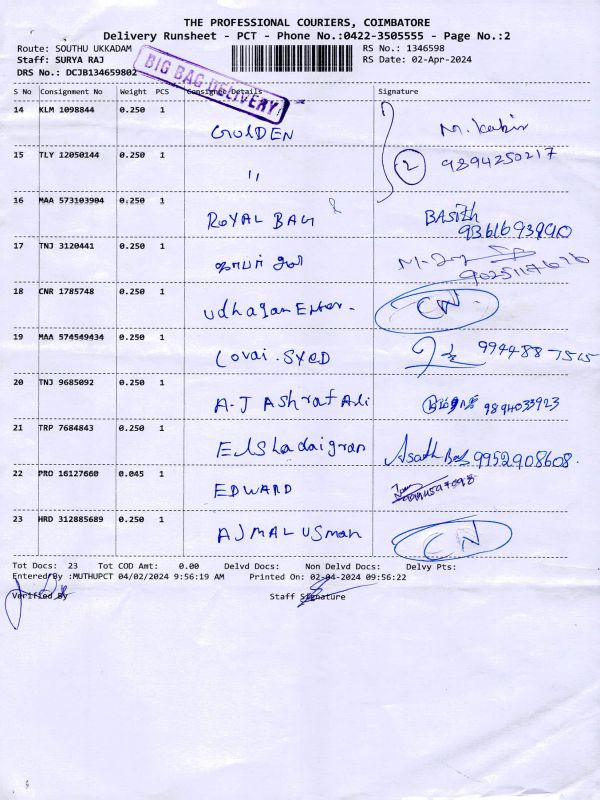 THE PROFESSIONAL COURIERS, COIMBATORE
Delivery Runsheet - PCT - Phone No.:0422-3505555 - Page No.:2
Route: SOUTHU UKKADAM
RS No.: 1346598
Staff: SURYA RAJ
RS Date: 02-Apr-2024
DRS No.: DCJB134659802
BIG BAG DELIVERY
S No Consignment No Weight PCS Consignee Details Signature
14 KLM 1098844 0.250 1 GOLDEN M. Kabir
15 TLY 12050144 0.250 1 " 2 9894250217
16 MAA 573103904 0.250 1 ROYAL BAG BASith
9361693940
17 TNJ 3120441 0.250 1
18 CNR 1785748 0.250 1 Udhayam Enter. CN
19 MAA 574549434 0.250 1 Covai . SYED 994488 7515
20 TNJ 9685092 0.250 1 A.J Ashraf Ali 9894033923
21 TRP 7684843 0.250 1 Asath 9952908608.
22 PRO 16127660 0.045 1 EDWARD
23 HRD 312885689 0.250 1 AJMAL USman CN
Tot Docs: 23 Tot COD Amt: 0.00 Delvd Docs: Non Delvd Docs: Delvy Pts:
Entered By :MUTHUPCT 04/02/2024 9:56:19 AM Printed On: 02-04-2024 09:56:22
Verified By Staff Signature